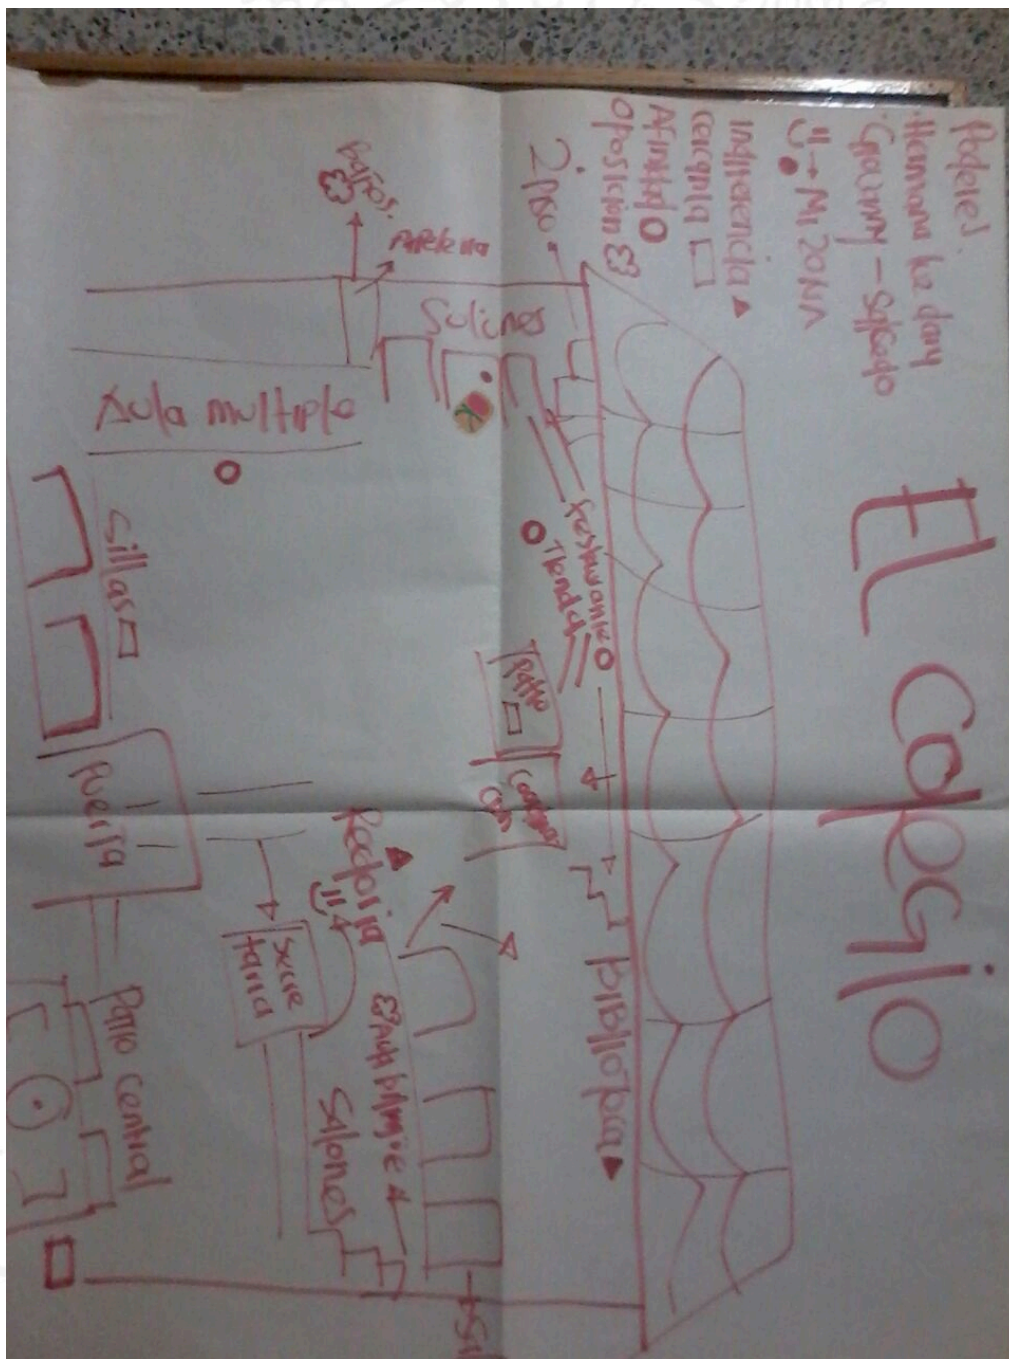 El colegio
Poderes.
Hermana ke dany
Giovanny - Salcedo
→ Mi ZONA
Indiferencia
cercania
Afinidad
oposicion
2 piso.
baños.
Papeleria
Salones
Aula multiple
restaurante
Tienda
Patio
Sillas
Puerta
Biblioteca
Rectoria
Secre
taria
Aula bilingüe
Salones
Patio central